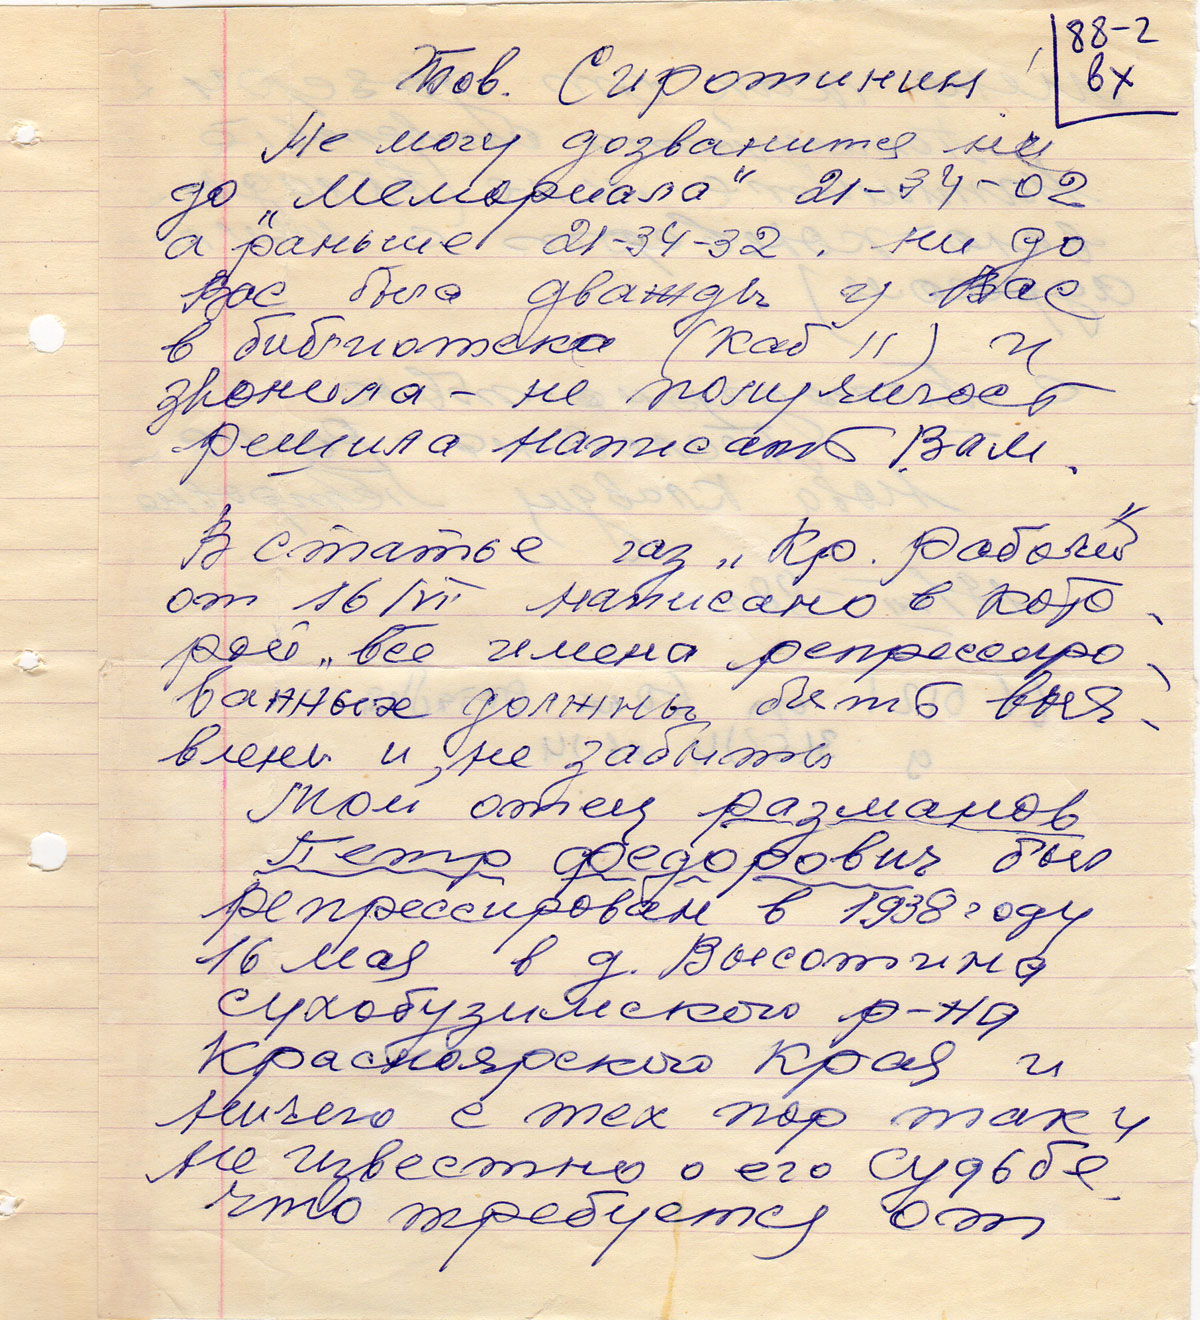 88-2
вх
Тов. Сиротинин!
Не могу дозванится ни
до „Мемориала“ 21-34-02
а раньше 21-34-32. ни до
Вас была дважды у Вас
в библиотека (каб 11) и
звонила - не получилост
решила написать Вам.
В статье газ „Кр. рабочий“
от 16/VI написано в кото
рой „все имена репрессиро
ванных должны быть выя
влены и не забыты
Мой отец разманов
Петр Федорович был
репрессирован в 1938 году
16 мая в д. Высотина
сухобузимского р-на
Красноярского Края и
ничего с тех пор так и
не известно о его судьбе.
что требуется от